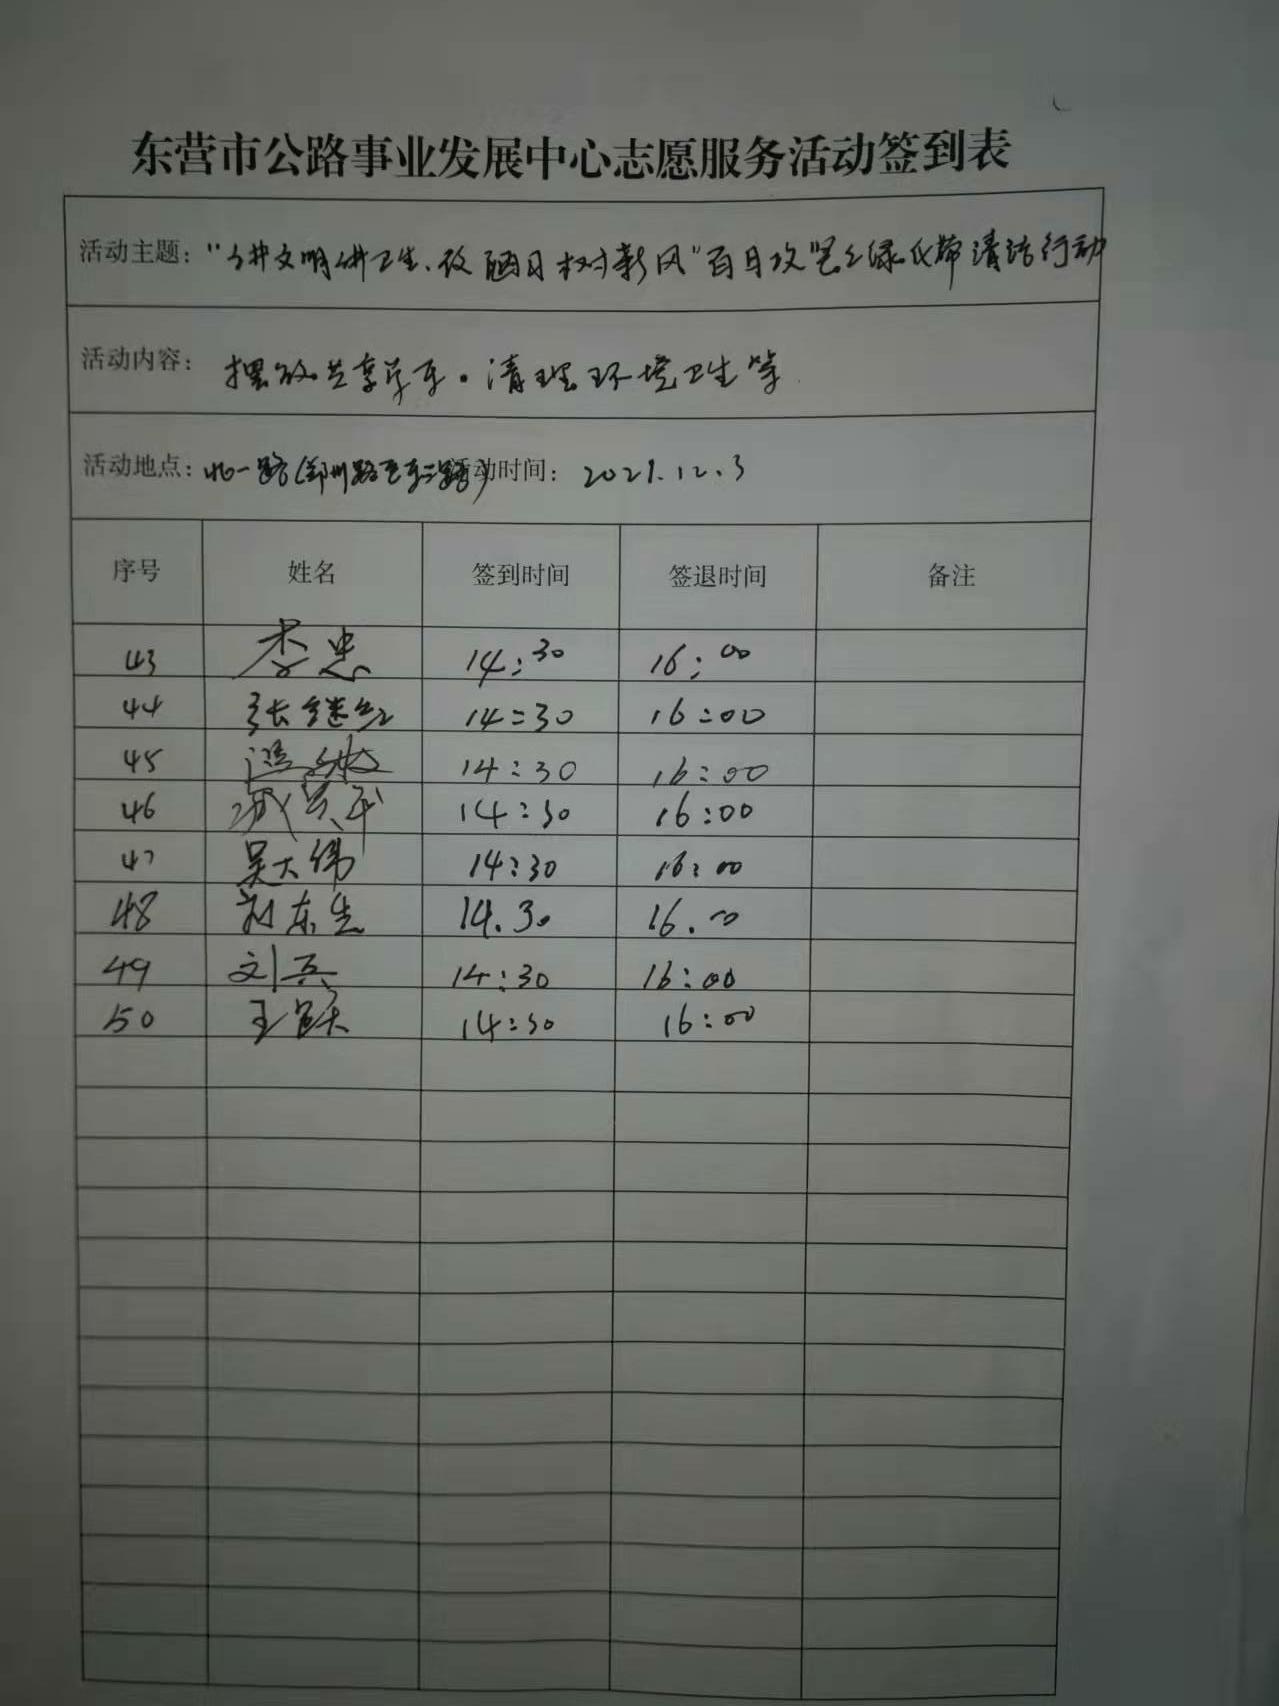 东营市公路事业发展中心志愿服务活动签到表
活动主题："讲文明讲卫生、改陋习树新风"百日攻坚之绿化带清洁行动
活动内容：摆放共享单车。清理环境卫生等
活动地点：北一路(郑州路至东二路)活动时间：2021.12.3
序号 姓名 签到时间 签退时间 备注
43 李忠 14:30 16:00
44 张继红 14:30 16:00
45 14:30 16:00
46 14:30 16:00
47 吴大伟 14:30 16:00
48 刘东生 14.30 16.00
49 刘兵 14:30 16:00
50 王 14:30 16:00